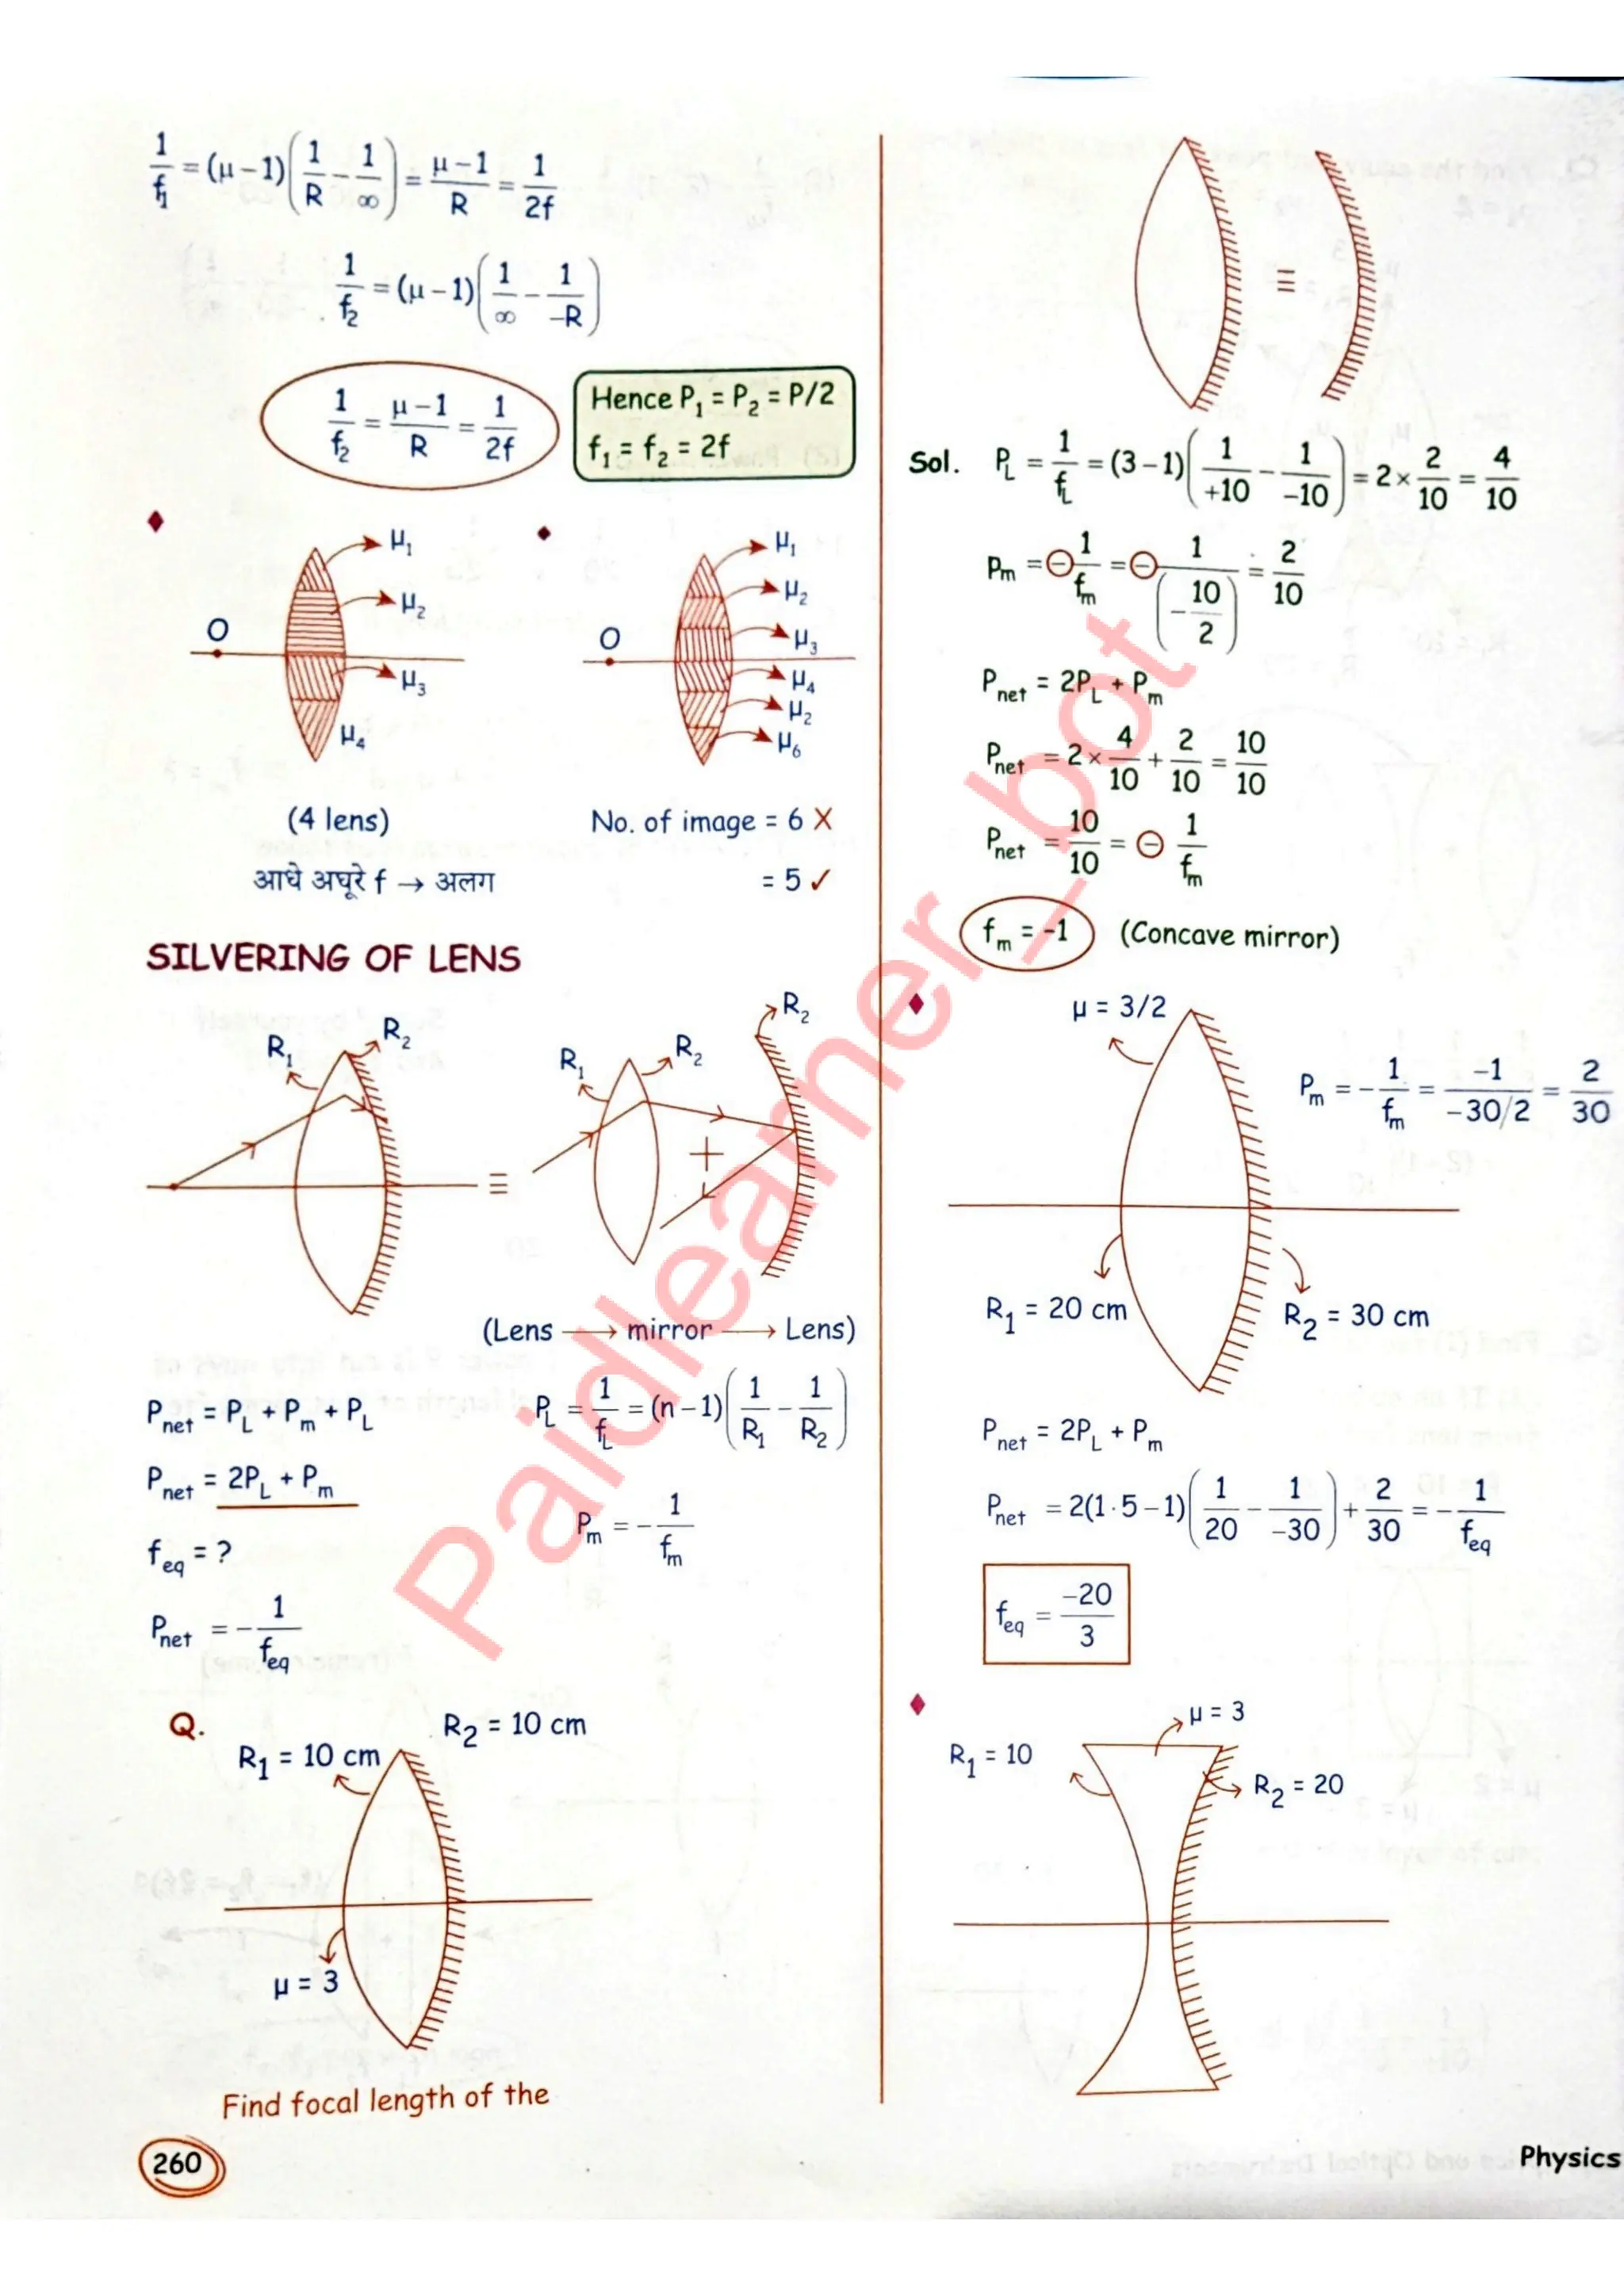 1/f₁ = (μ – 1)(1/R – 1/∞) = (μ – 1)/R = 1/2f
1/f₂ = (μ – 1)(1/∞ – 1/–R)
1/f₂ = (μ – 1)/R = 1/2f
Hence P₁ = P₂ = P/2
f₁ = f₂ = 2f
μ₁
μ₂
O
μ₃
μ₄
(4 lens)
आधे अघूरे f → अलग
μ₁
μ₂
O
μ₃
μ₄
μ₂
μ₆
No. of image = 6 X
= 5 ✓
SILVERING OF LENS
R₁
R₂
≡
R₁
R₂
+
R₂
(Lens ⟶ mirror ⟶ Lens)
P_net = P_L + P_m + P_L
P_L = 1/f_L = (n – 1)(1/R₁ – 1/R₂)
P_net = 2P_L + P_m
P_m = – 1/f_m
f_eq = ?
P_net = – 1/f_eq
Q.
R₁ = 10 cm
R₂ = 10 cm
μ = 3
Find focal length of the
260
≡
Sol. P_L = 1/f_L = (3 – 1)(1/+10 – 1/–10) = 2 × 2/10 = 4/10
P_m = – 1/f_m = – 1/(–10/2) = 2/10
P_net = 2P_L + P_m
P_net = 2 × 4/10 + 2/10 = 10/10
P_net = 10/10 = – 1/f_m
f_m = –1 (Concave mirror)
μ = 3/2
P_m = – 1/f_m = –1/–30/2 = 2/30
R₁ = 20 cm
R₂ = 30 cm
P_net = 2P_L + P_m
P_net = 2(1·5 – 1)(1/20 – 1/–30) + 2/30 = – 1/f_eq
f_eq = –20/3
μ = 3
R₁ = 10
R₂ = 20
Physics
Paidlearner_bot